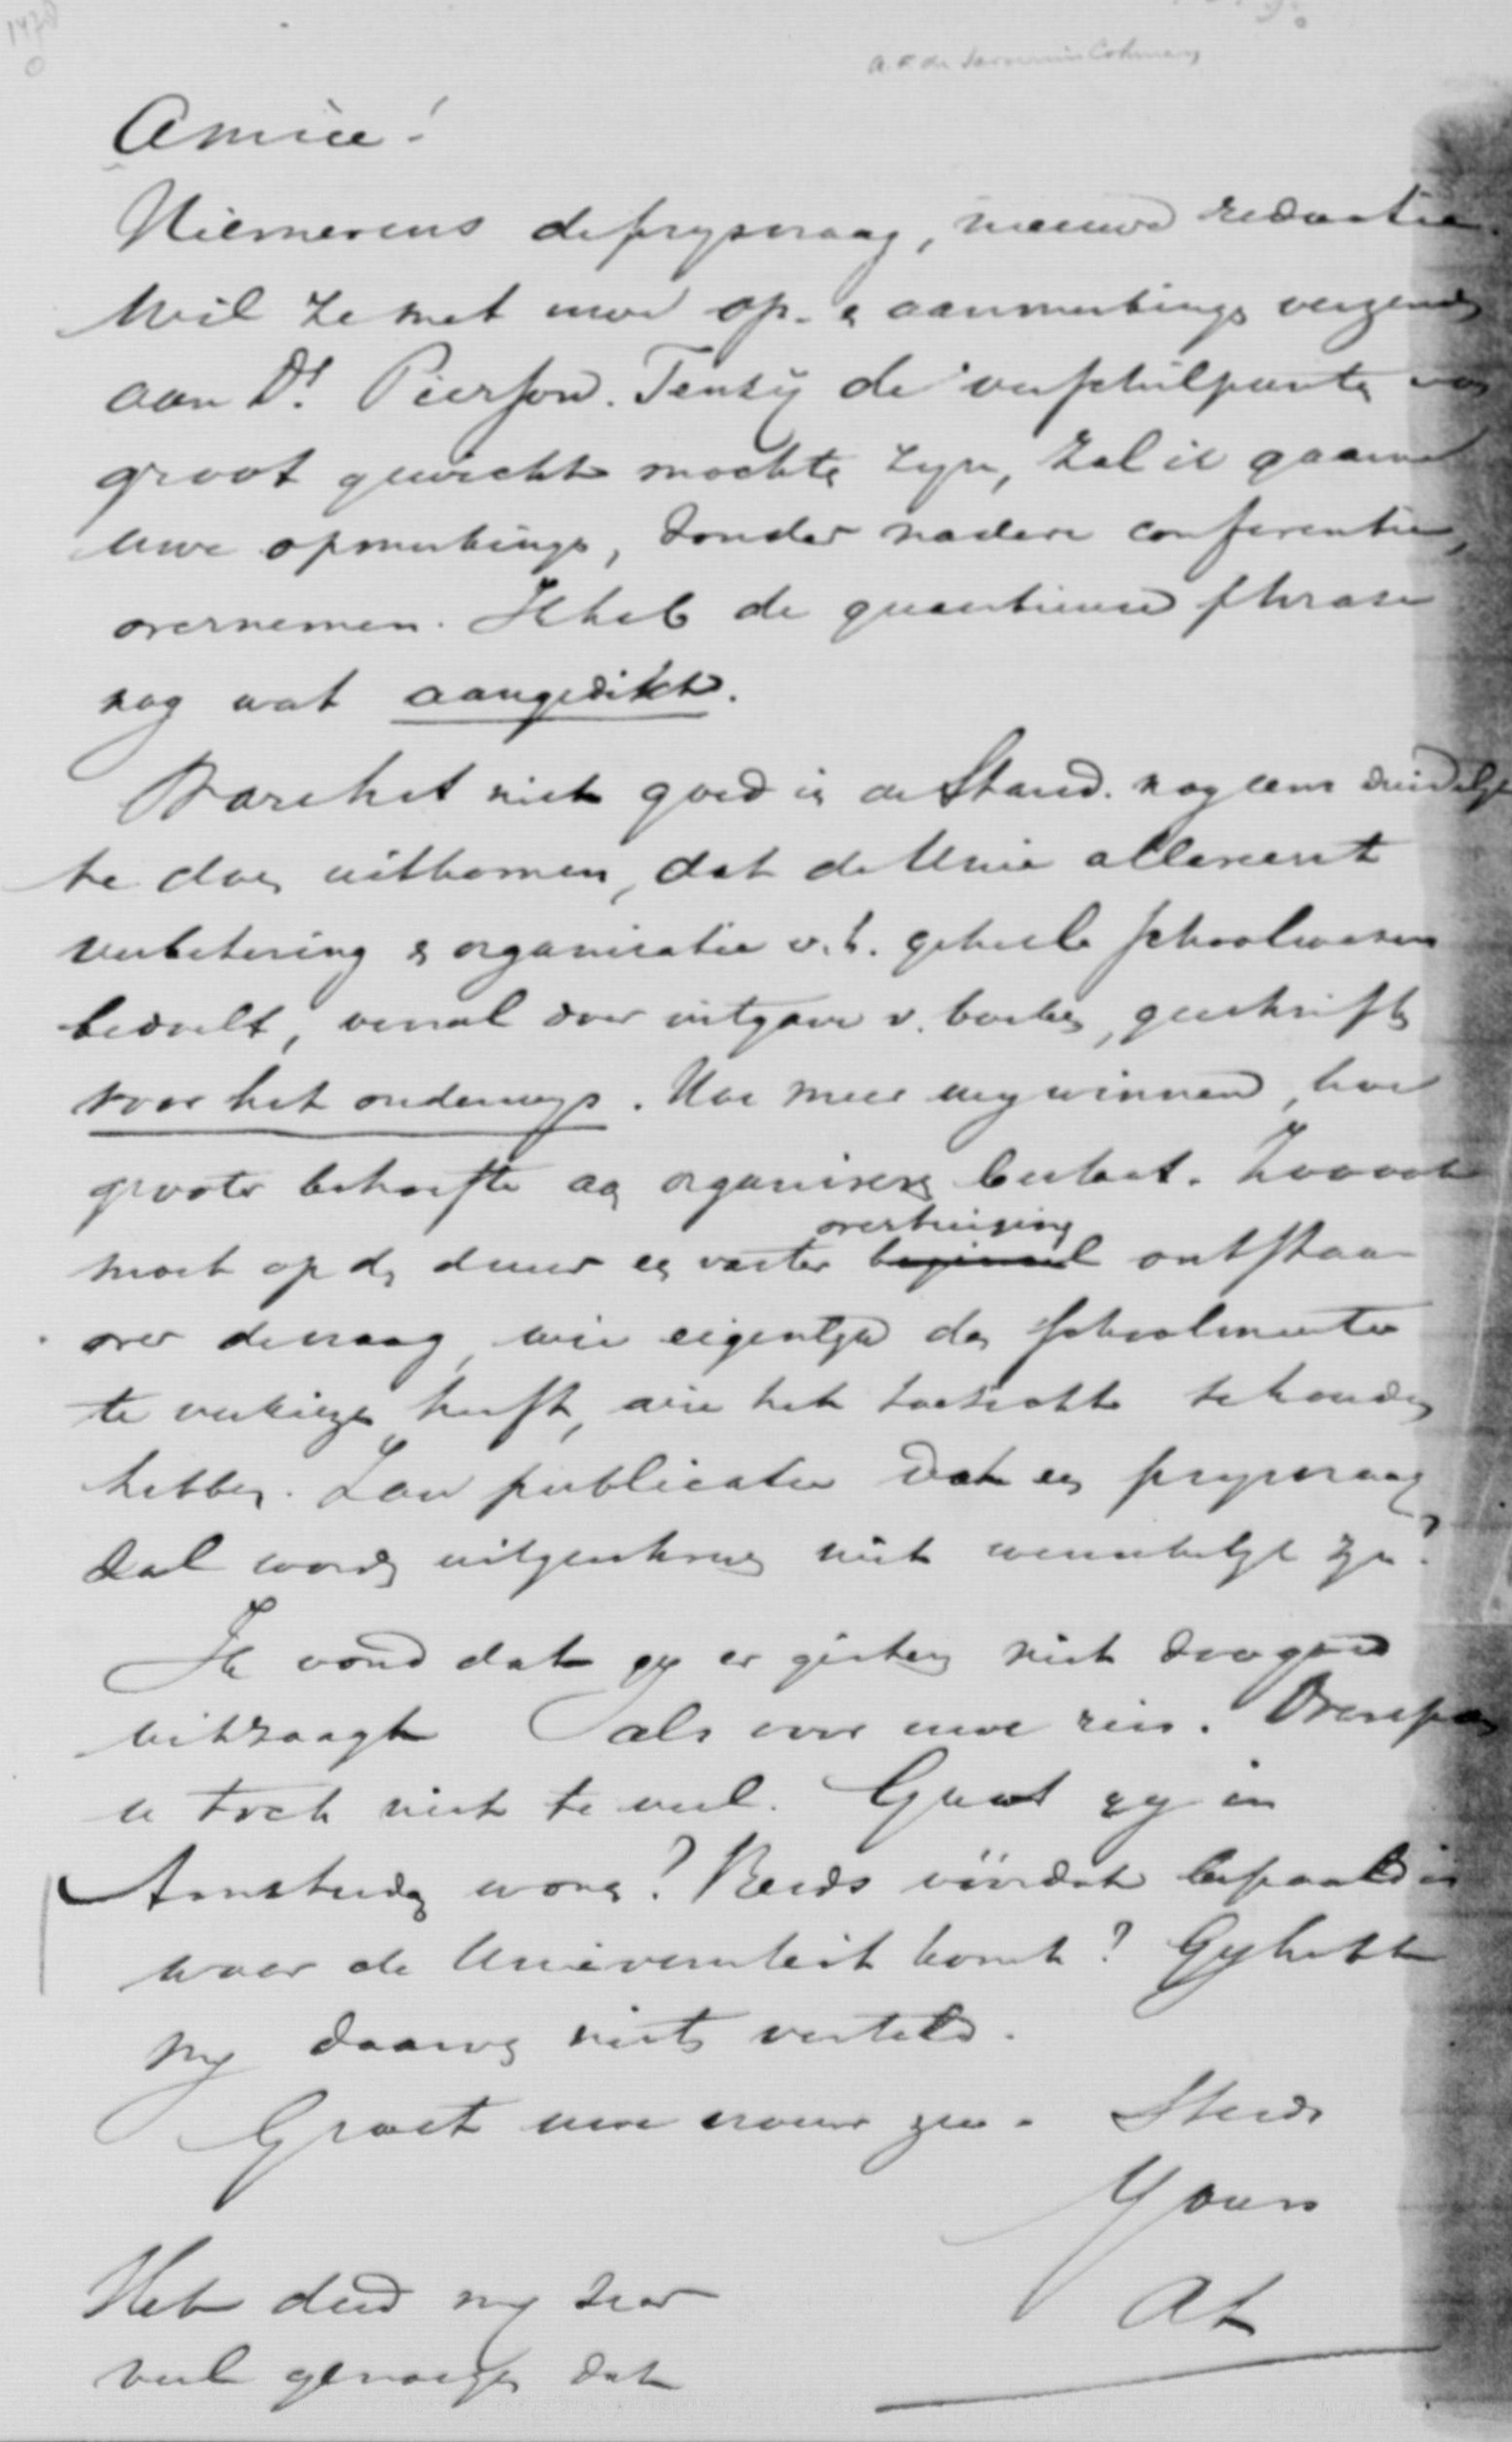 Amice!
Hiernevens de prysvraag, nieuwe redactie.
Wil ze met uwe op- & aanmerkings verzenden
aan Dr. Pierson. Tenzij de verschilpunten van
groot gewicht mochten zyn, zal ik gaarne
uwe opmerkings, zonder nadere conferentie,
overnemen. Ik heb de quaestieuse phrase
nog wat aangedikt.
Ware het niet goed in de Stand. nog eens duidelyk
te doen uitkomen, dat de Unie allereerst
verbetering & organisatie v.h. geheele schoolwezen
bedoelt, vooral door uitgave v. boeken, geschriften
voor het onderwys. Hoe meer wy winnen, hoe
grooter behoefte aan organiseren bestaat. Zooook
moet op den duur een vaster overtuiging beginsel ontstaan
over de vraag, wie eigenlyk den schoolmeester
te verkiezen heeft, wie het toezicht te houden
hebben. Zou publicatie dat een prysvraag
zal worden uitgeschreven niet wenschelyk zyn?
Ik vond dat gy er gisteren niet zoo goed
uitzaagt als voor uwe reis. Overspan
u toch niet te veel. Gaat gy in
Amsterdam wonen? Reeds vóórdat bepaald is
waar de Universiteit komt? Gy hebt
my daarvan niets verteld.
Groet uwe vrouw zeer. Steeds
Yours
Het deed my zeer
veel genoegen dat